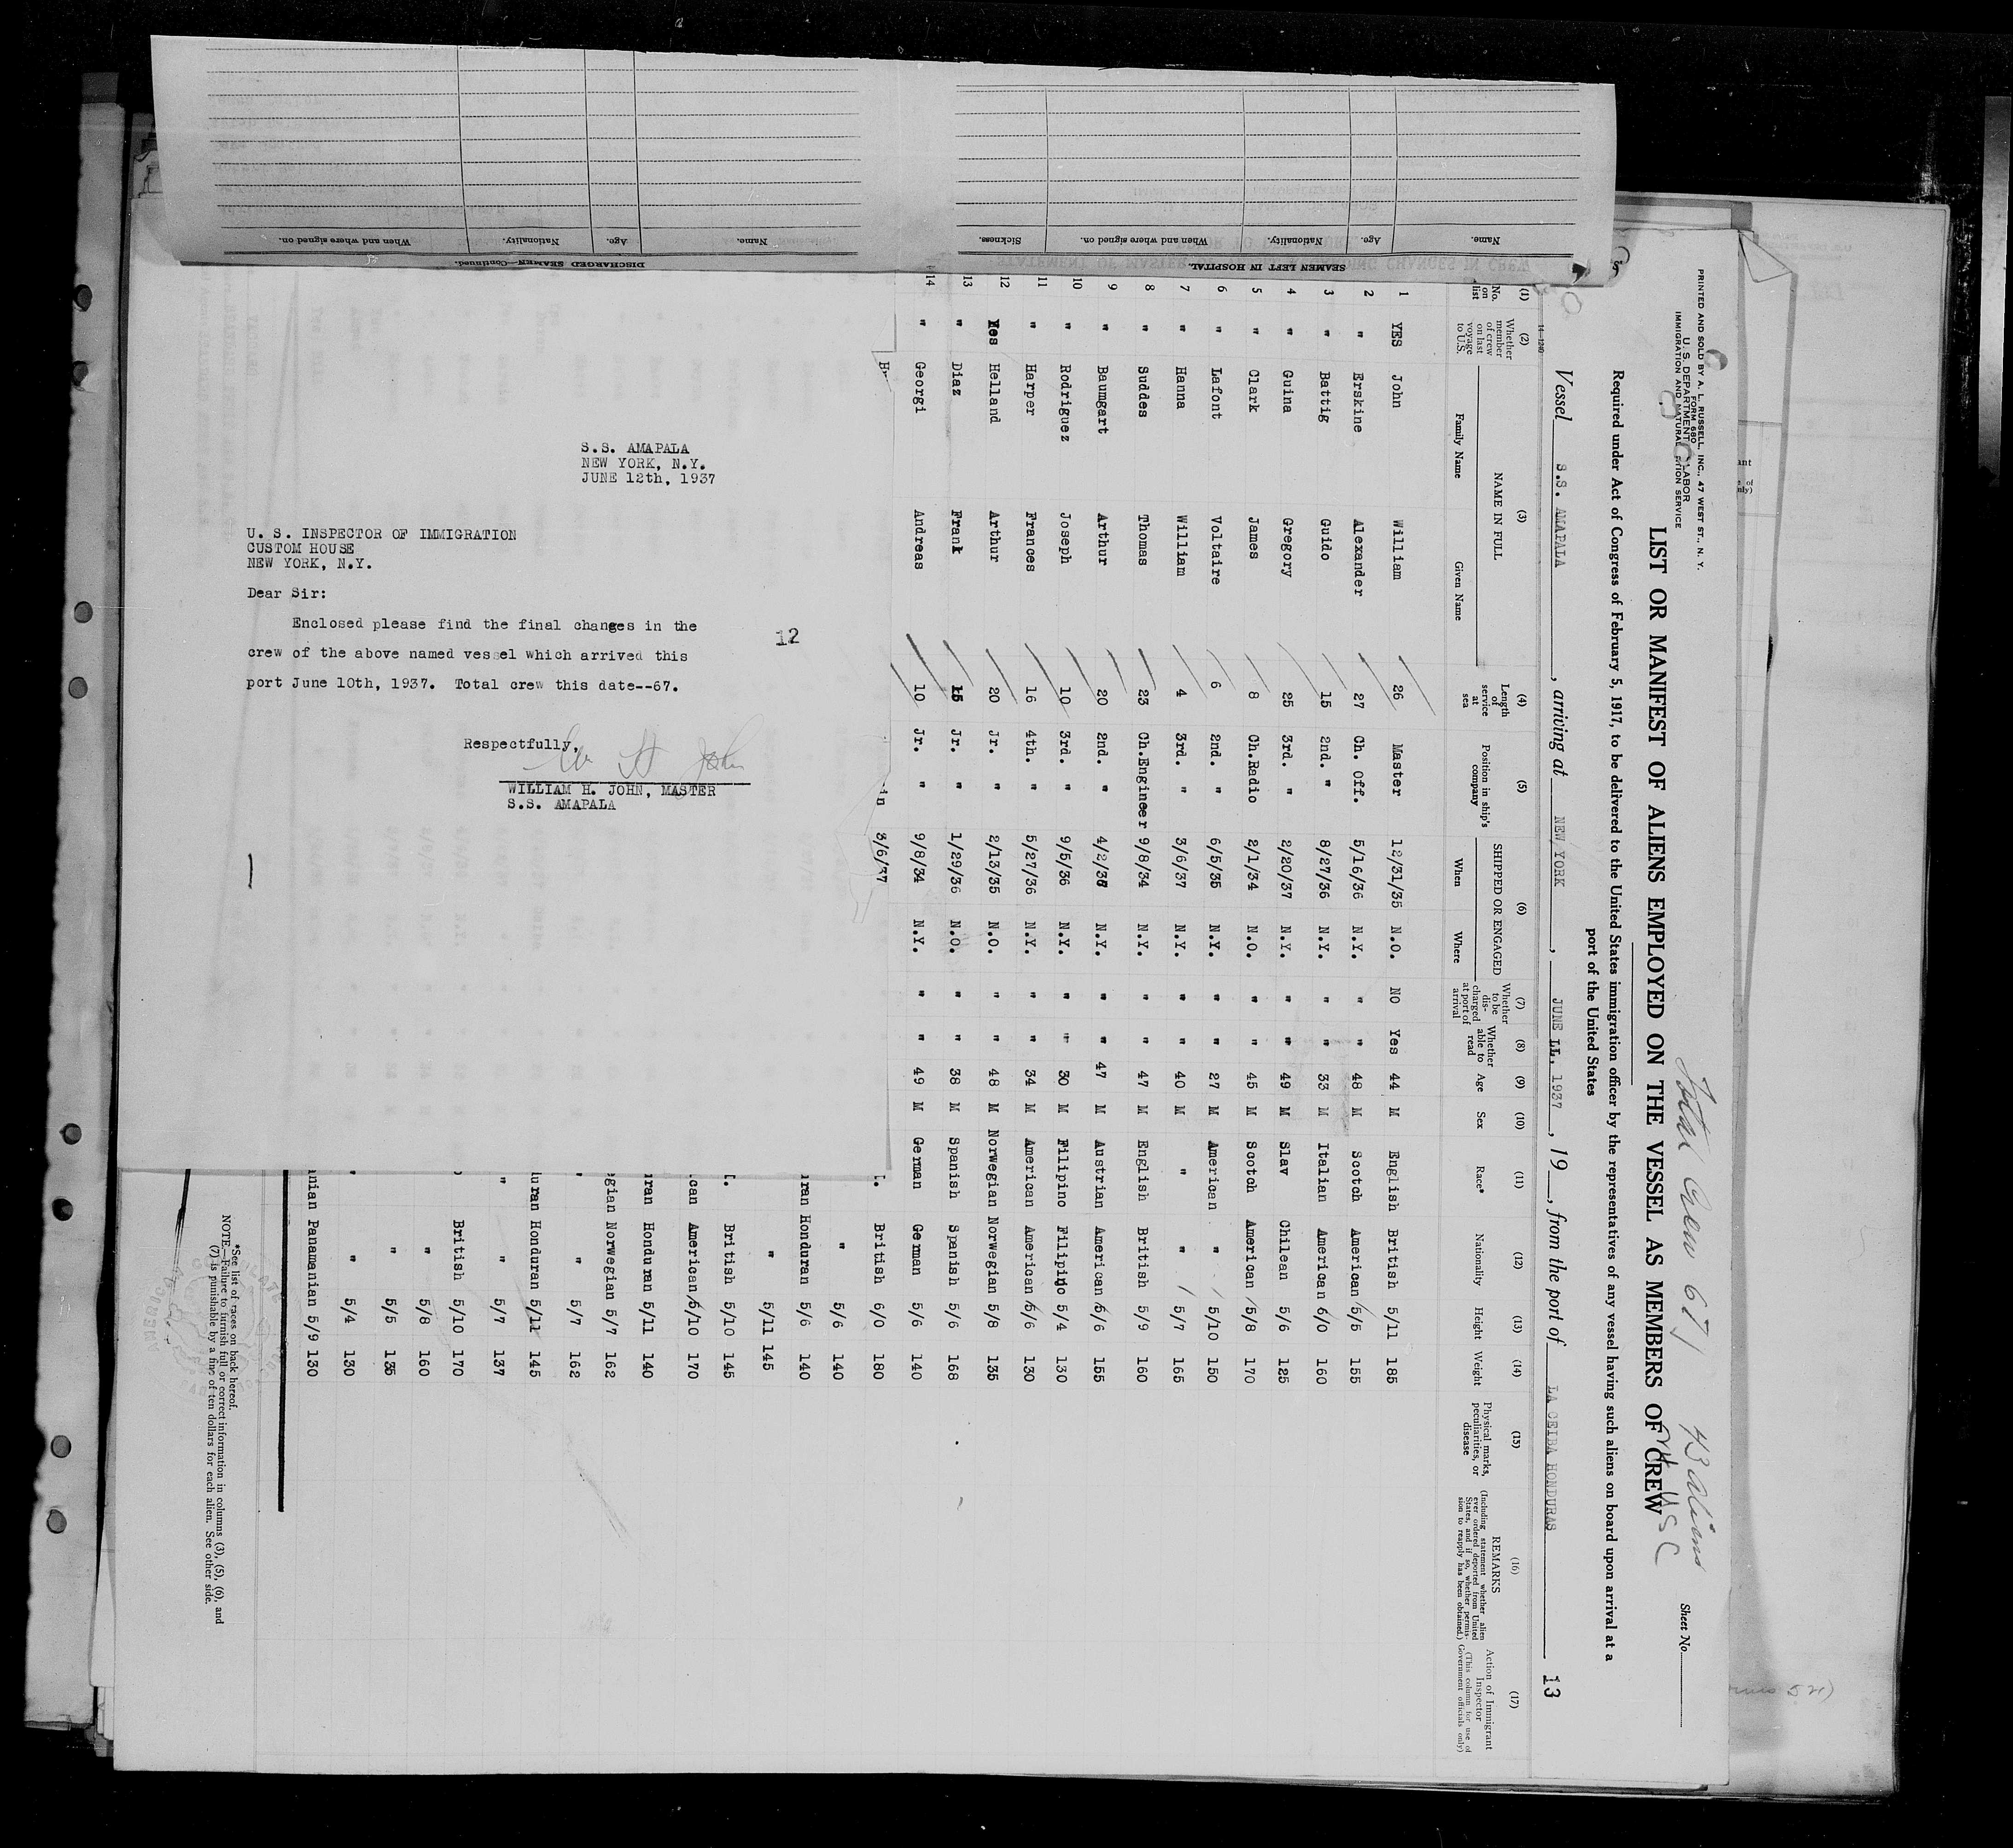 S.S. AMAPALA
NEW YORK, N.Y.
JUNE 12th, 1937
U. S. INSPECTOR OF IMMIGRATION
CUSTOM HOUSE
NEW YORK, N.Y.
Dear Sir:
Enclosed please find the final changes in the
crew of the above named vessel which arrived this
port June 10th, 1937. Total crew this date--67.
12
Respectfully,
Wm H John
WILLIAM H. JOHN, MASTER
S.S. AMAPALA
SEAMEN LEFT IN HOSPITAL.
Name. Age. Nationality. When and where signed on. Sickness.
DISCHARGED SEAMEN—Continued.
Name. Age. Nationality. When and where signed on.
PRINTED AND SOLD BY A. L. RUSSELL, INC., 47 WEST ST., N. Y.
FORM 680
U. S. DEPARTMENT LABOR
IMMIGRATION AND NATURALIZATION SERVICE
Total Crew 67 43 aliens
24 USC
Sheet No.
LIST OR MANIFEST OF ALIENS EMPLOYED ON THE VESSEL AS MEMBERS OF CREW
Required under Act of Congress of February 5, 1917, to be delivered to the United States immigration officer by the representatives of any vessel having such aliens on board upon arrival at a
port of the United States
Vessel S.S. AMAPALA, arriving at NEW YORK, JUNE LL, 1937, 19, from the port of LA CEIBA HONDURAS 13
14—1240
(1) (2) (3) (4) (5) (6) (7) (8) (9) (10) (11) (12) (13) (14) (15) (16) (17)
No. on list Whether member of crew on last voyage to U.S. NAME IN FULL Family Name Given Name Length of service at sea Position in ship's company SHIPPED OR ENGAGED When Where Whether to be discharged at port of arrival Whether able to read Age Sex Race* Nationality Height Weight Physical marks, peculiarities, or disease REMARKS (Including statement whether alien ever ordered deported from United States, and if so, whether permission to reapply has been obtained.) Action of Immigrant Inspector (This column for use of Government officials only)
1 YES John William 26 Master 12/31/35 N.O. NO Yes 44 M English British 5/11 185
2 " Erskine Alexander 27 Ch. Off. 5/16/36 N.Y. " " 48 M Scotch American 5/5 155
3 " Battig Guido 15 2nd. " 8/27/36 N.Y. " " 33 M Italian American 6/0 160
4 " Guina Gregory 25 3rd. " 2/20/37 N.Y. " " 49 M Slav Chilean 5/6 125
5 " Clark James 8 Ch.Radio 2/1/34 N.O. " " 45 M Scotch American 5/8 170
6 " Lafont Voltaire 6 2nd. " 6/5/35 N.Y. " " 27 M American " 5/10 150
7 " Hanna William 4 3rd. " 3/6/37 N.Y. " " 40 M " " 5/7 165
8 " Suddes Thomas 23 Ch.Engineer 9/8/34 N.Y. " " 47 M English British 5/9 160
9 " Baumgart Arthur 20 2nd. " 4/2/36 N.Y. " " 47 M Austrian American 5/6 155
10 " Rodriguez Joseph 10 3rd. " 9/5/36 N.Y. " " 30 M Filipino Filipino 5/4 130
11 " Harper Frances 16 4th. " 5/27/36 N.Y. " " 34 M American American 5/6 130
12 Yes Helland Arthur 20 Jr. " 2/13/35 N.O. " " 48 M Norwegian Norwegian 5/8 135
13 " Diaz Frank 15 Jr. " 1/29/36 N.O. " " 38 M Spanish Spanish 5/6 168
14 " Georgi Andreas 10 Jr. " 9/8/34 N.Y. " " 49 M German German 5/6 140
3/6/37 British 6/0 180
" 5/6 140
Honduran 5/6 140
" 5/11 145
British 5/10 145
American 5/10 170
Honduran 5/11 140
Norwegian 5/7 162
" " 5/7 162
Honduran 5/11 145
" " 5/7 137
British 5/10 170
" 5/8 160
" 5/5 135
" " 5/4 130
Panamanian 5/9 130
*See list of races on back hereof.
NOTE.—Failure to furnish full or correct information in columns (3), (5), (6), and
(7) is punishable by a fine of ten dollars for each alien. See other side.